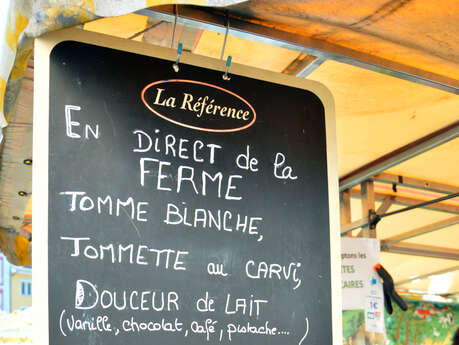 La Référence
EN DIRECT de la
FERME
TOMME BLANCHE,
TOMMETTE au CARVI,
DOUCEUR de LAIT
(Vanille, chocolat, Café, pistache....)
ptons les
TES
CAIRES
1€